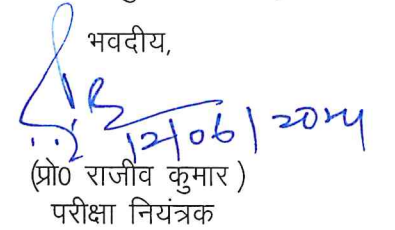 भवदीय,
12/06/2024
(प्रो0 राजीव कुमार )
परीक्षा नियंत्रक